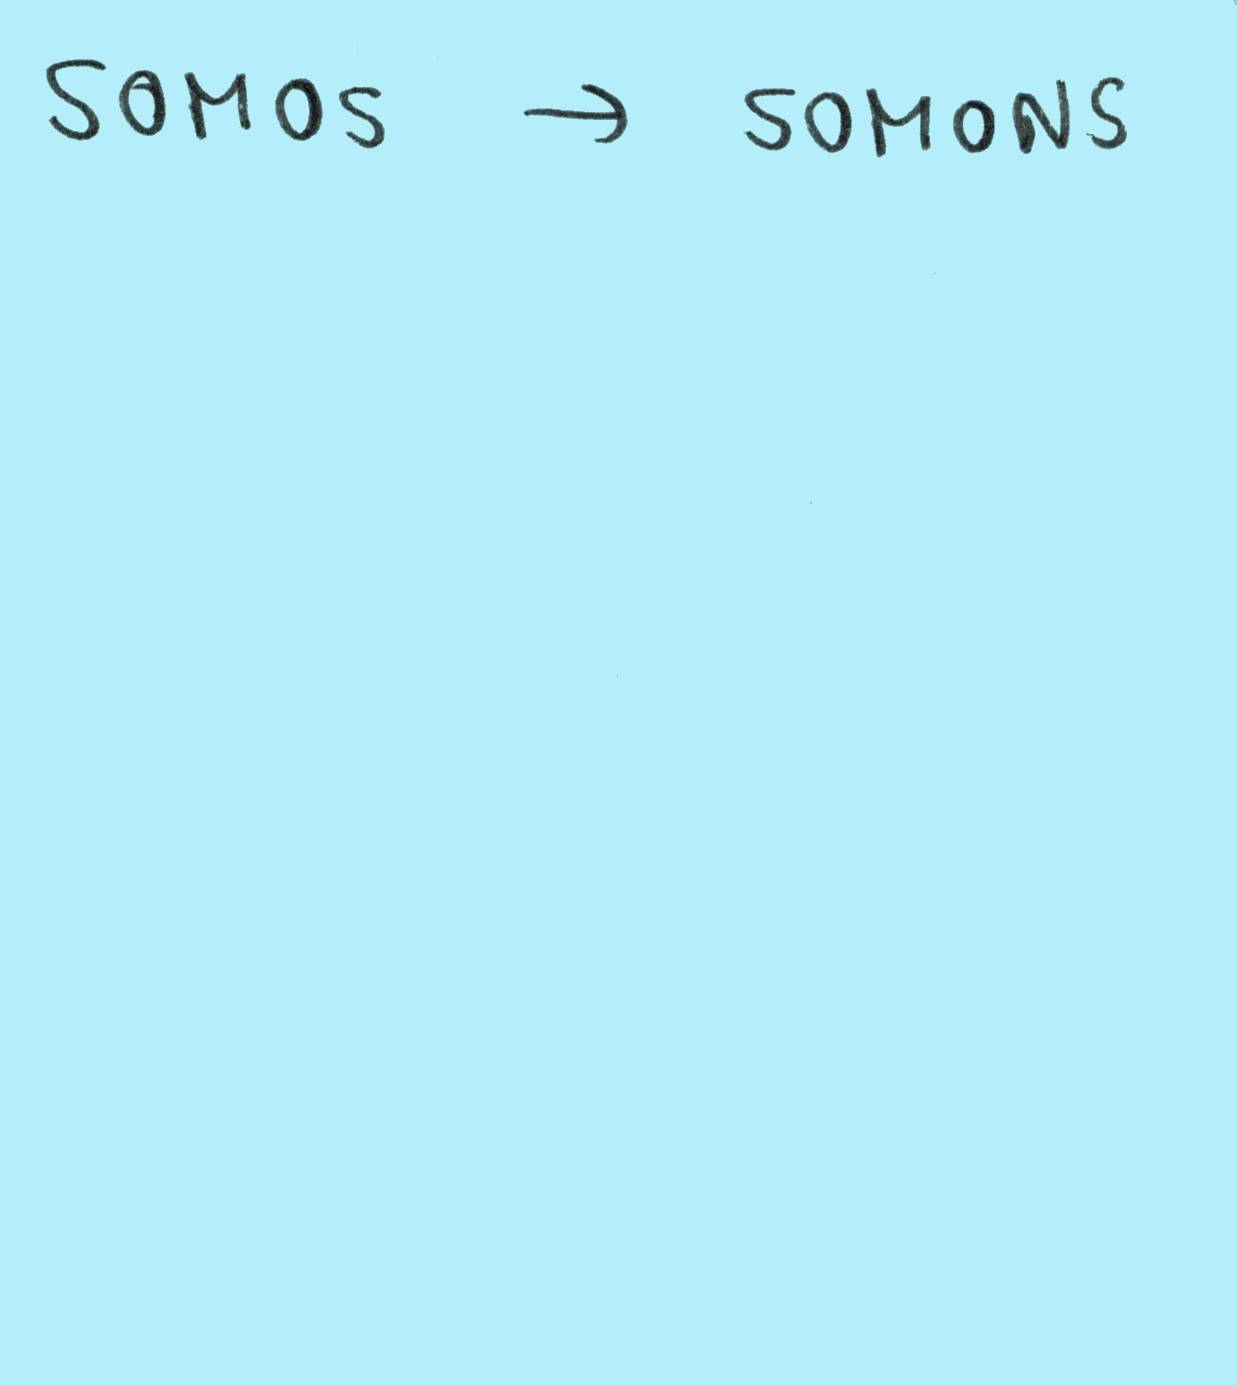 SOMOS → SOMONS